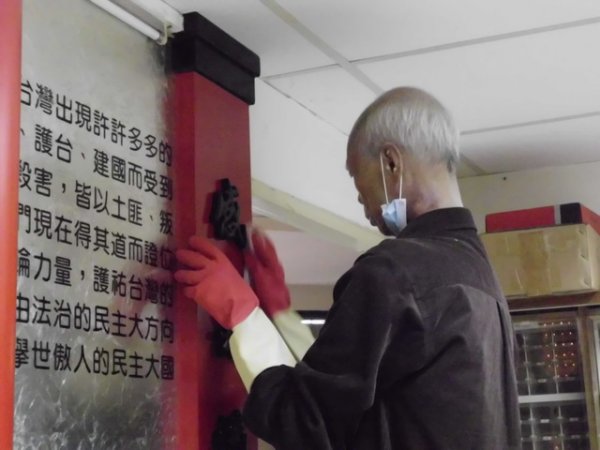 台灣出現許許多多的
、護台、建國而受到
殺害，皆以土匪、叛
門現在得其道而證位
論力量，護祐台灣的
由法治的民主大方向
舉世傲人的民主大國